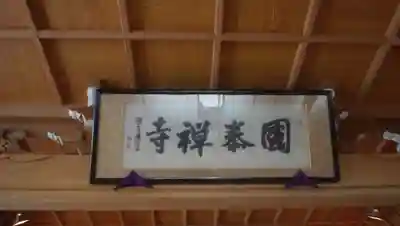 國泰禅寺